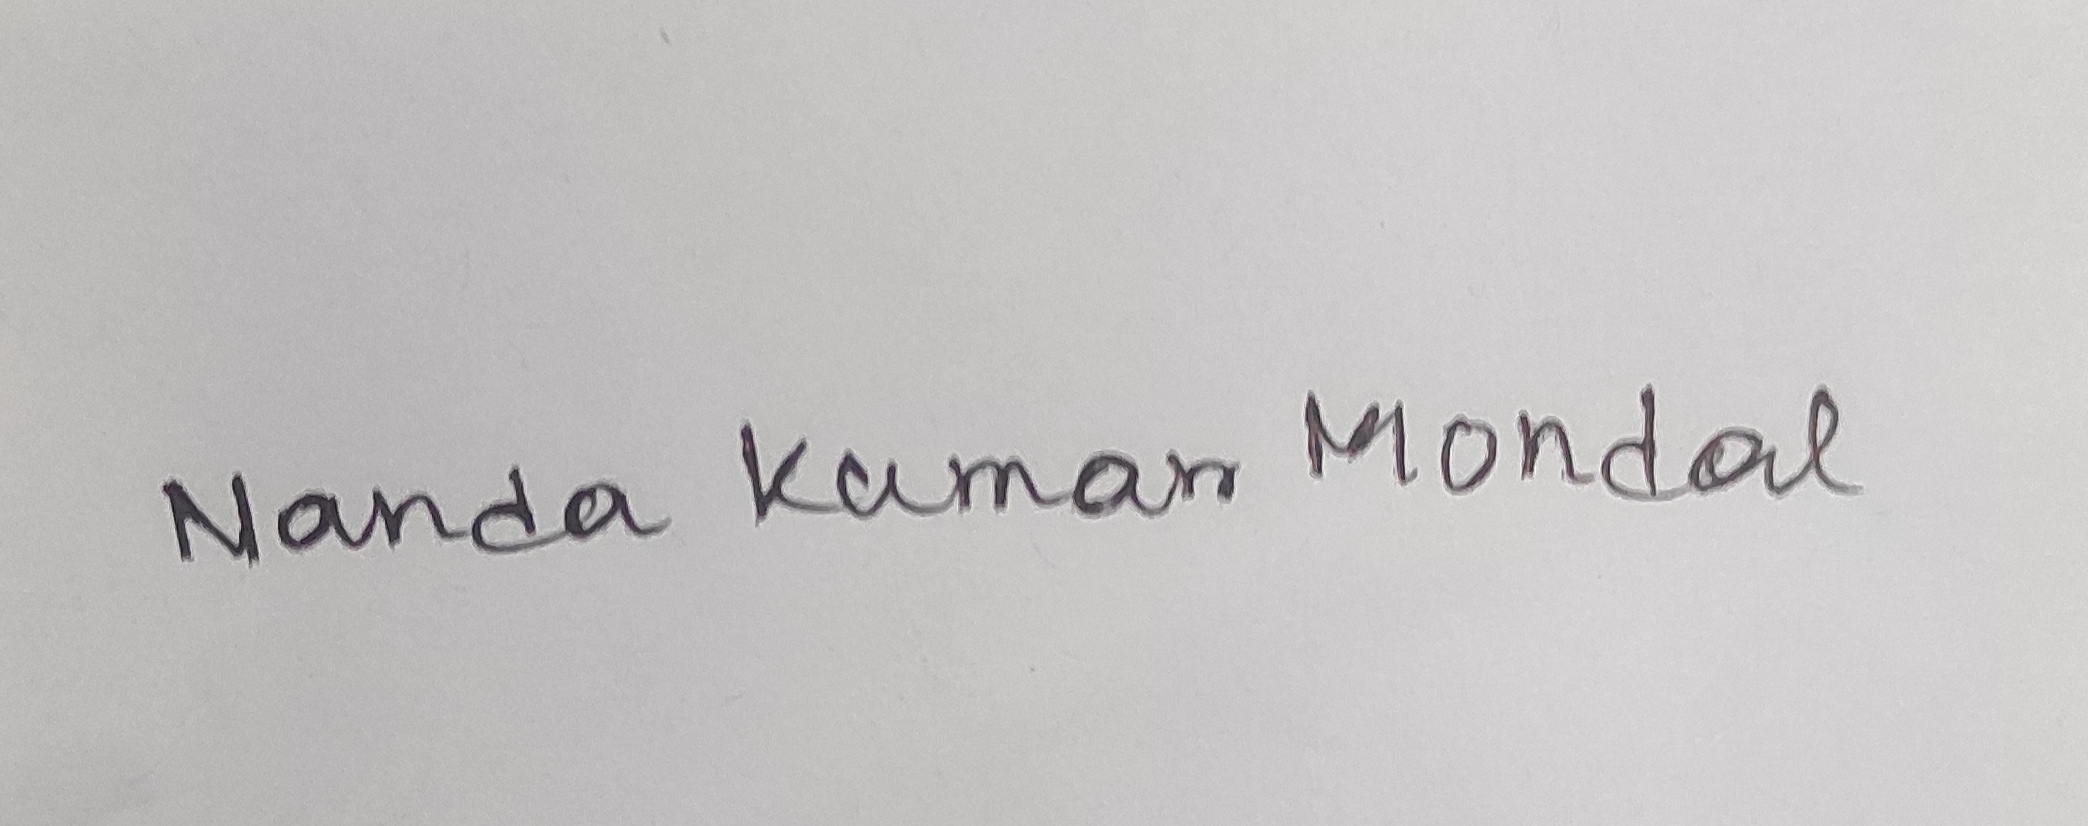 Nanda Kumar Mondal